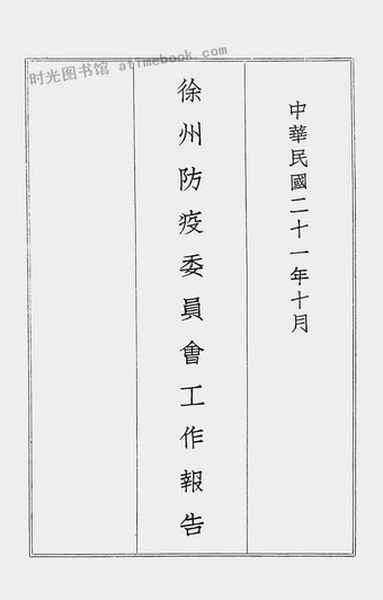 时光图书馆 atimebook.com
中華民國二十一年十月
徐州防疫委員會工作報告